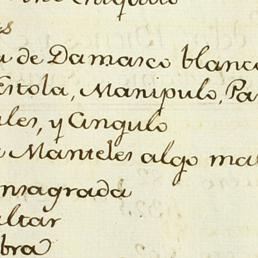 s
a de Damasco blanco
Estola, Manipulo, Pa
ales, y Cingulo
Manteles algo mal
onsagrada
altar
bra